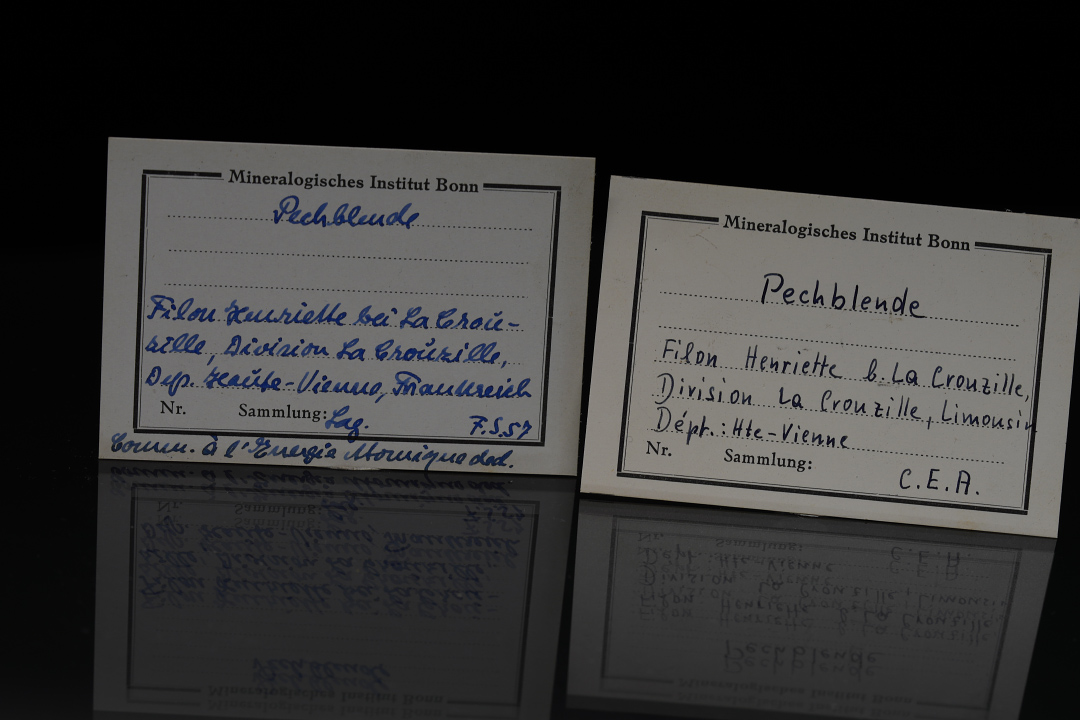 Mineralogisches Institut Bonn
Pechblende
Filon Henriette bei La Crou-
zille, Division La Crouzille,
Dep. Haute-Vienne, Frankreich
Nr. Sammlung: Lag. F.S.57
Comm. à l'Energie Atomique ded.
Mineralogisches Institut Bonn
Pechblende
Filon Henriette b. La Crouzille,
Division La Crouzille, Limousin
Dépt.: Hte-Vienne
Nr. Sammlung: C.E.A.